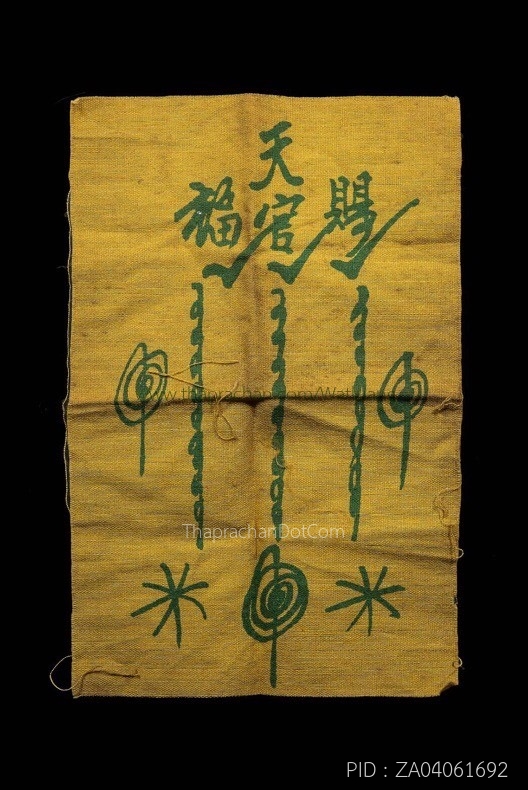 天
福官賜
ThaprachanDotCom
PID : ZA04061692